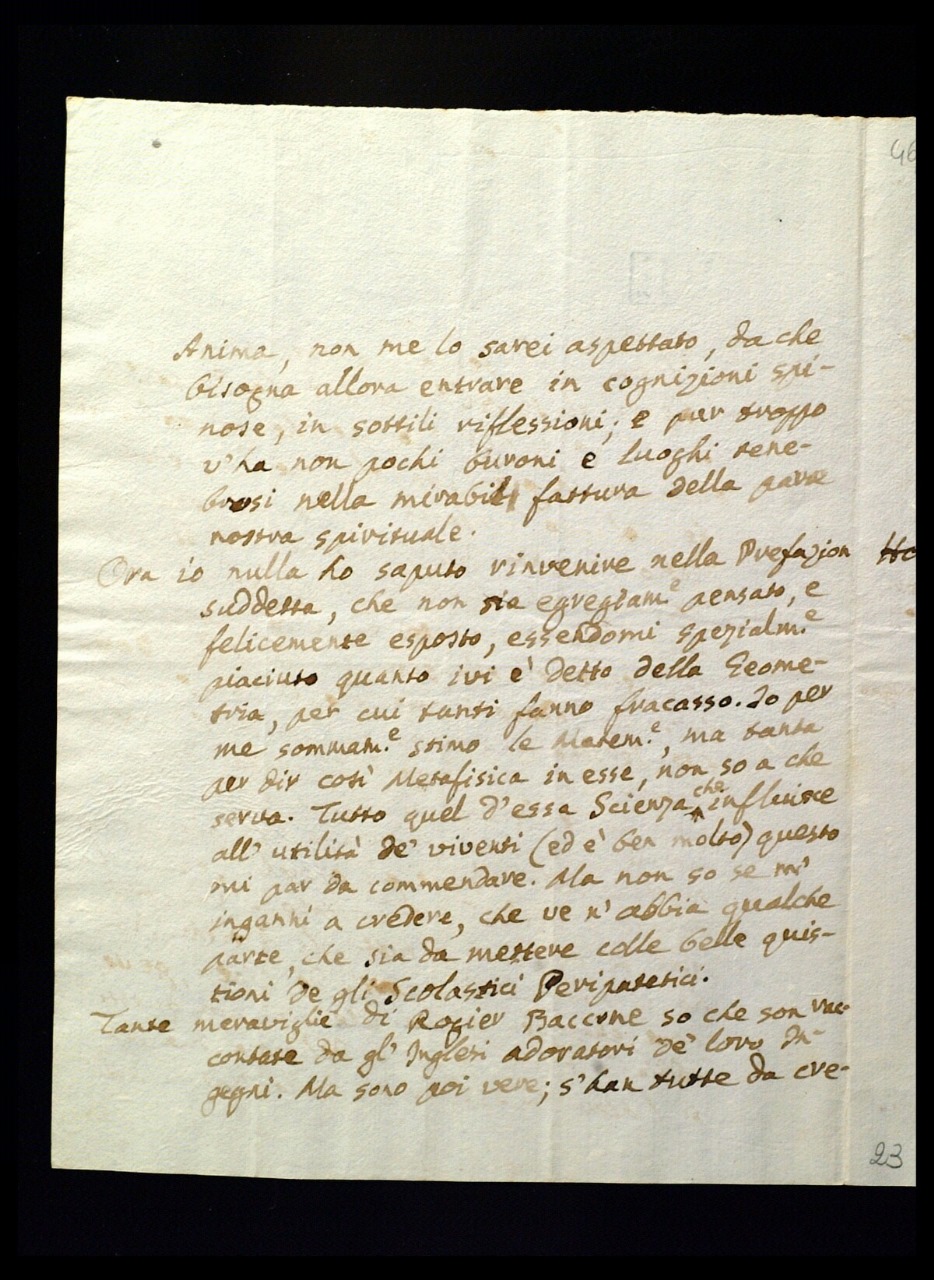 46
Anima, non me lo sarei aspettato, da che
bisogna allora entrare in cognizioni spi-
nose, in sottili riflessioni; e pur troppo
v'ha non pochi buroni e luoghi tene-
brosi nella mirabil fattura della parte
nostra spirituale.
Ora io nulla ho saputo rinvenire nella Prefazion
suddetta, che non sia egregiam.e pensato, e
felicemente esposto, essendomi spezialm.e
piaciuto quanto ivi è detto della Geome-
tria, per cui tanti fanno fracasso. Io per
me sommam.e stimo le Matem.e, ma tanta
per dir così Metafisica in esse, non so a che
serva. Tutto quel d'essa Scienza che influisce
all' utilità de' viventi (ed è ben molto) questo
mi par da commendare. Ma non so se m'
inganni a credere, che ve n' abbia qualche
parte, che sia da mettere colle belle quis-
tioni de gli Scolastici Peripatetici.
Tante meraviglie di Rogier Baccone so che son rac-
contate da gl' Inglesi adoratori de' loro In-
gegni. Ma sono poi vere; s'han tutte da cre-
23